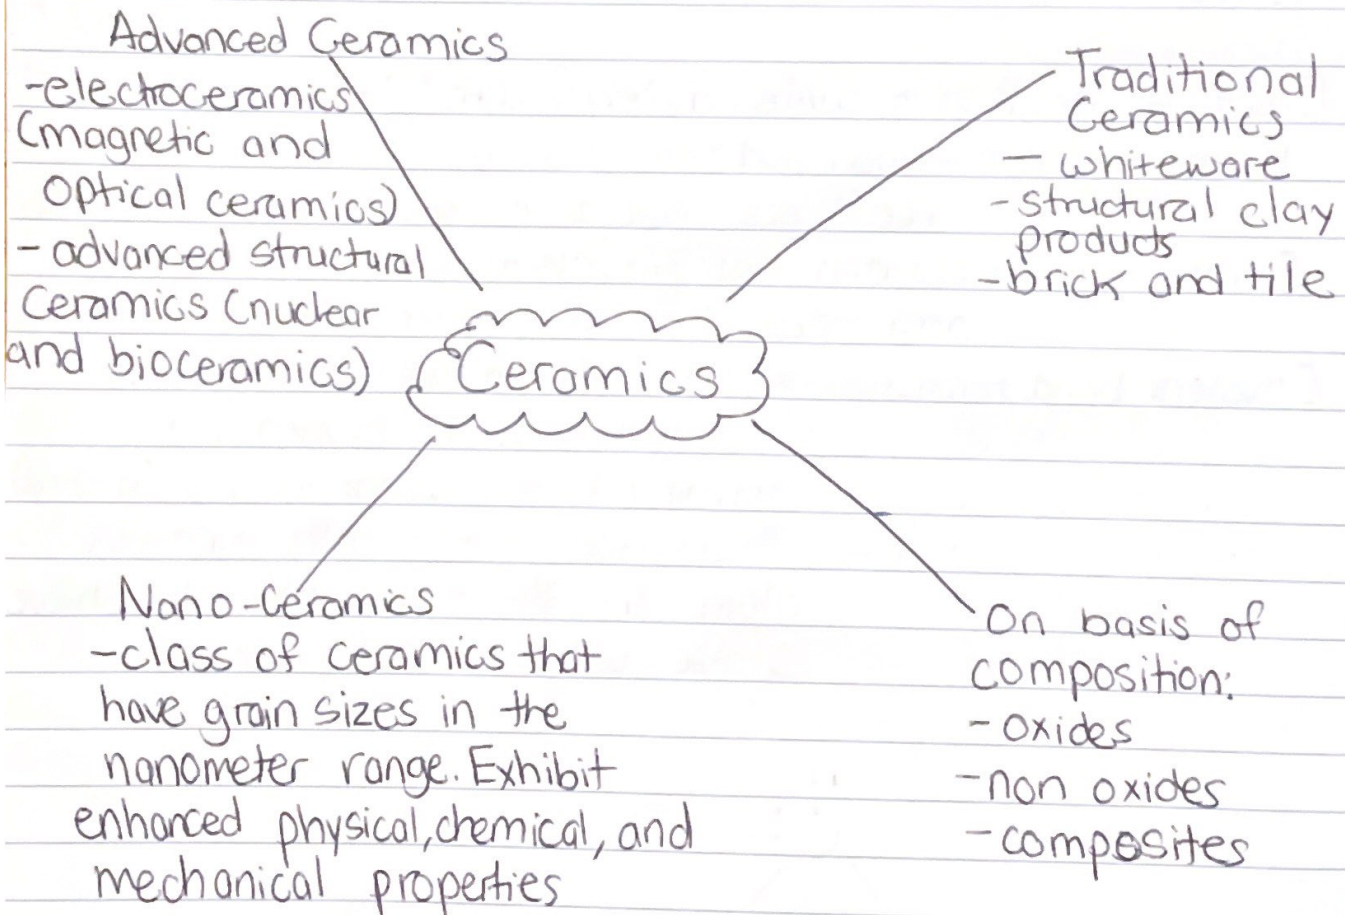 Advanced Ceramics
-electroceramics
(magnetic and
optical ceramics)
- advanced structural
ceramics (nuclear
and bioceramics)
Traditional
Ceramics
- whiteware
-structural clay
products
-brick and tile
Ceramics
Nano-Ceramics
-class of ceramics that
have grain sizes in the
nanometer range. Exhibit
enhanced physical, chemical, and
mechanical properties
On basis of
composition:
- oxides
-non oxides
-composites